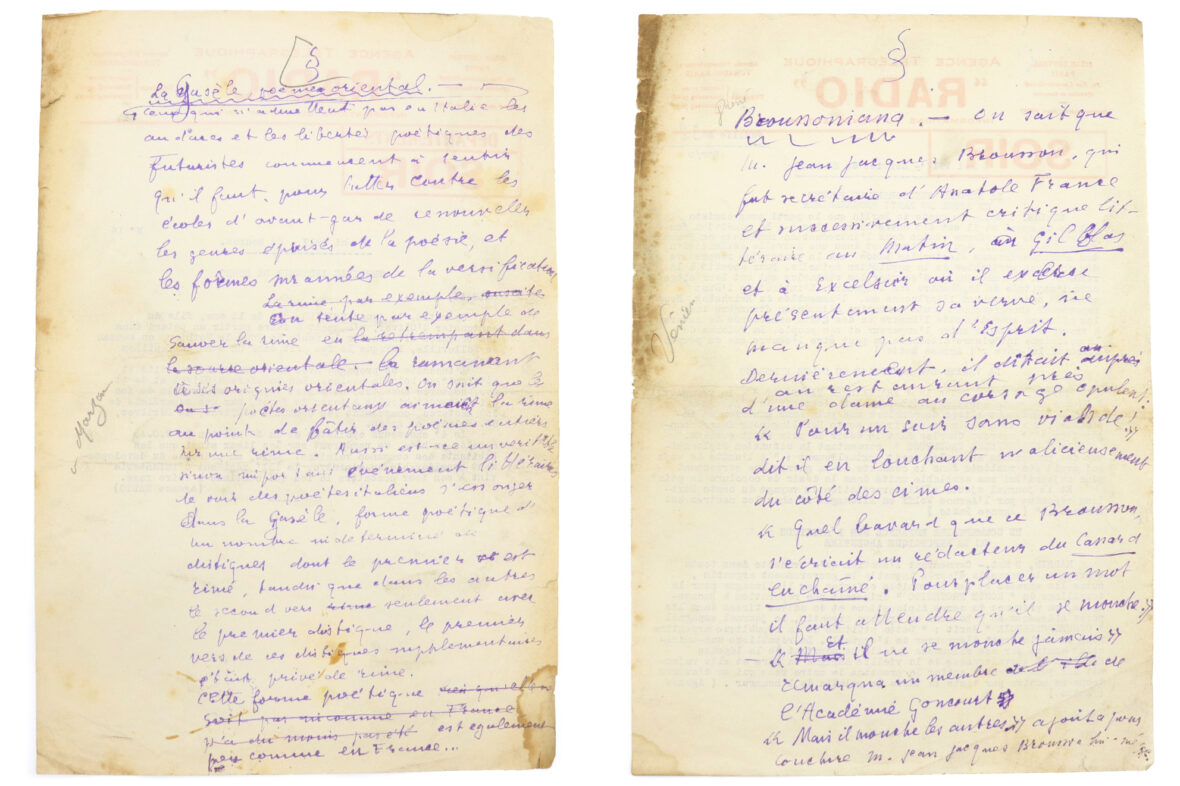 §
La Gasèle poème oriental. —
Ceux qui n'admettent pas en Italie les
audaces et les libertés poétiques des
Futuristes commencent à sentir
qu'il faut, pour lutter contre les
écoles d'avant-garde renouveler
les genres épuisés de la poésie, et
les formes surannées de la versification
La rime par exemple, suscite
On tente par exemple de
sauver la rime en la retrempant dans
la source orientale. la ramenant
à ses origines orientales. On sait que
poètes orientaux aiment la rime
au point de bâtir des poèmes entiers
sur une rime. Aussi est-ce un véritable
sinon important événement littéraire
de voir des poètes italiens s'essayer
dans la Gasèle, forme poétique d'
un nombre indéterminé de
distiques dont le premier est
rimé, tandis que dans les autres
le second vers rime seulement avec
le premier distique, le premier
vers de ces distiques supplémentaires
étant privé de rime.
Cette forme poétique
soit pas inconnue en France
n'a du moins pas été est également
peu connue en France...
Marzan
§
AGENCE TÉLÉGRAPHIQUE
"RADIO"
SOIR
Broussoniana. — On sait que
M. Jean Jacques Brousson, qui
fut secrétaire d'Anatole France
et successivement critique lit-
téraire au Matin, au Gil Blas
et à Excelsior où il exerce
présentement sa verve, ne
manque pas d'Esprit.
Dernièrement, il dînait
au restaurant près
d'une dame au corsage opulent.
« Pour un soir sans viande ! »
dit il en louchant malicieusement
du côté des cimes.
« Quel bavard que ce Brousson,
s'écriait un rédacteur du Canard
enchaîné. Pour placer un mot
il faut attendre qu'il se mouche. »
— « Mais Et il ne se mouche jamais »
remarqua un membre de
l'Académie Goncourt
« Mais il mouche les autres » ajouta pour
conclure M. Jean Jacques Brousson lui-même.